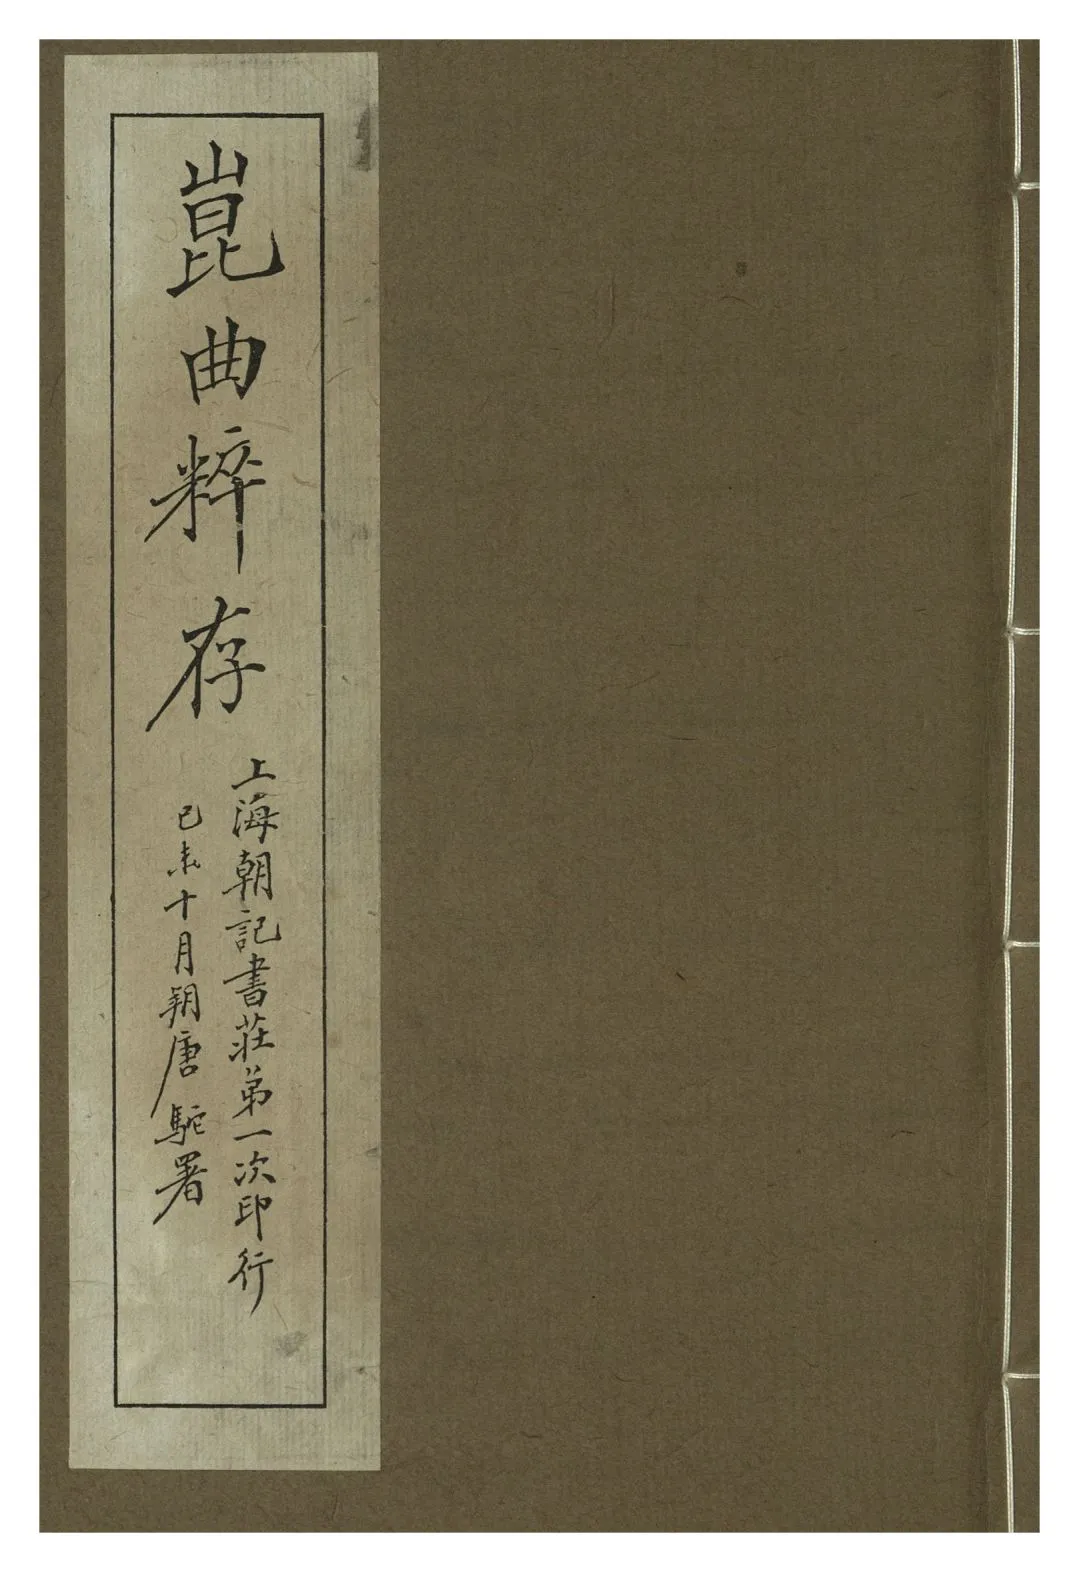 崑曲粹存
上海朝記書莊第一次印行
己未十月朔唐駝署